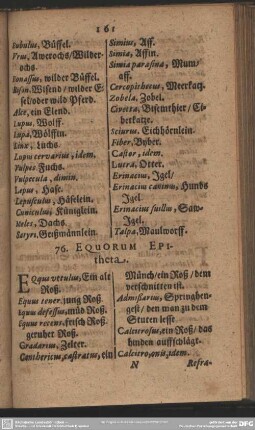 161
Bubulus, Büffel.
Vrus, Awerochs/Wilder-
ochs.
Bonassus, wilder Büffel.
Bison, Wisend/wilder E-
sel/oder wild Pferd.
Alce, ein Elend.
Lupus, Wolff.
Lupa, Wölffin.
Linx, Luchs.
Lupu cervarius, idem.
Vulpes, Fuchs.
Vulpecula, dimin.
Lepus, Hase.
Lepusculus, Häselein.
Cuniculus, Küniglein.
Meles, Dachs.
Satyri, Geißmännlein.
Simius, Aff.
Simia, Affin.
aff.
Cercopithecus, Meerkatz.
Zobela, Zobel.
Civetta, Bisemthier/Ci-
berkatze.
Sciurus, Eichhörnlein.
Fiber, Byber.
Castor, idem.
Lutra, Otter.
Erinacius, Igel/
Erinacius caninus, Hunds
Igel.
Erinacius suillus, Saw-
Igel.
Talpa, Maulworff.
76. EQUORUM EPI-
theta.
EQquus vetulus, Ein alt
Roß.
Equus tener, jung Roß.
Equus defessus, müd Roß.
Equus recens, frisch Roß.
geruhet Roß.
Gradarius, Zelter.
Cantherius, castratus, ein
Münch/ein Roß/dem
verschnitten ist.
Admissarius, Springhen-
gest/den man zu dem
Stuten lesse.
Calcitrosus, ein Roß/das
hinden auffschlägt.
Calcitro, onis, idem.
N
Refra-